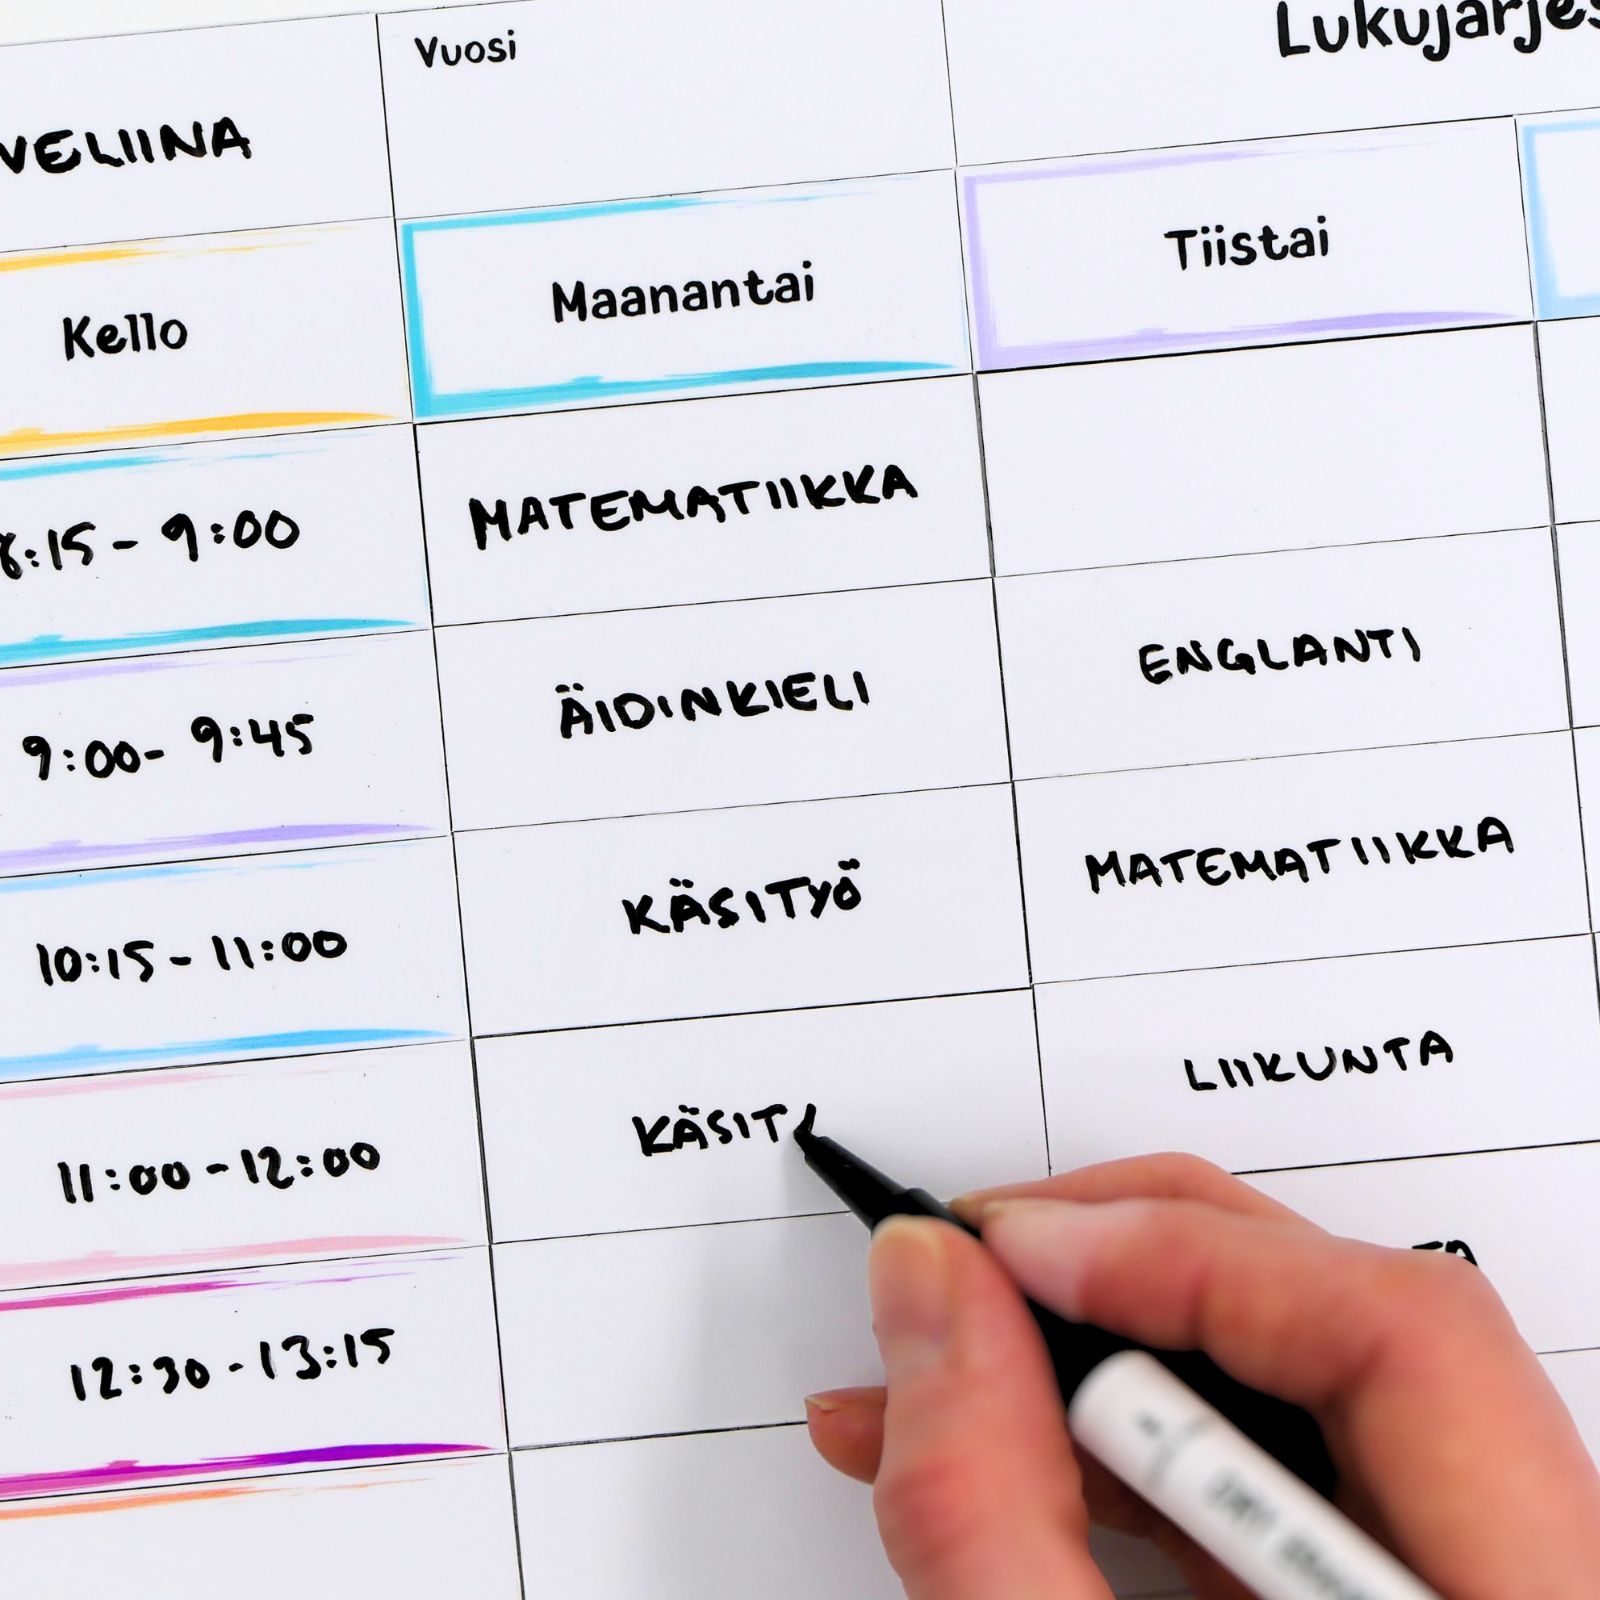 Vuosi
Lukujärjes
VELIINA
Kello Maanantai Tiistai
8:15 - 9:00 MATEMATIIKKA
9:00 - 9:45 ÄIDINKIELI ENGLANTI
10:15 - 11:00 KÄSITYÖ MATEMATIIKKA
11:00 - 12:00 KÄSIT LIIKUNTA
12:30 - 13:15 TA